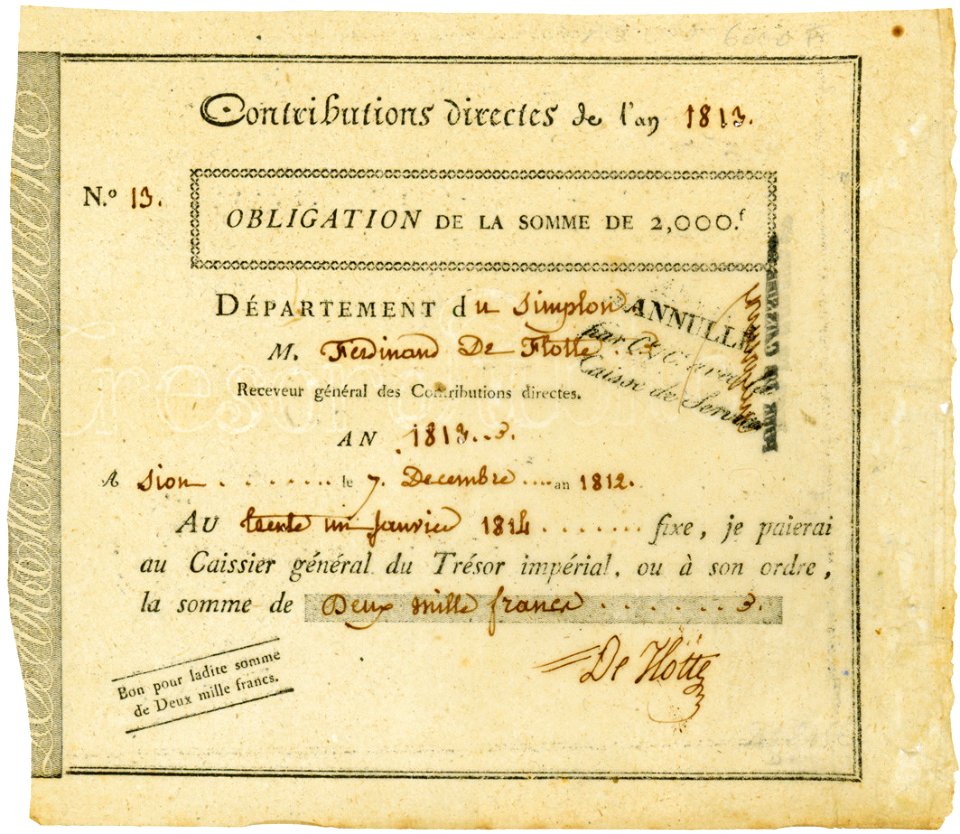 Contributions directes de l'an 1813.
N.º 13.
OBLIGATION DE LA SOMME DE 2,000.f
DÉPARTEMENT du Simplon
ANNULLÉ
par
Caisse de Service
M. Ferdinand De Flotte
Receveur général des Contributions directes.
AN 1813...3.
A Sion . . . . . . . . le 7. Decembre ....an 1812.
AU trente un Janvier 1814 . . . . . . . fixe, je paierai
au Caissier général du Trésor impérial, ou à son ordre,
la somme de Deux mille francs . . . . . . 3.
De Flotte
Bon pour ladite somme
de Deux mille francs.